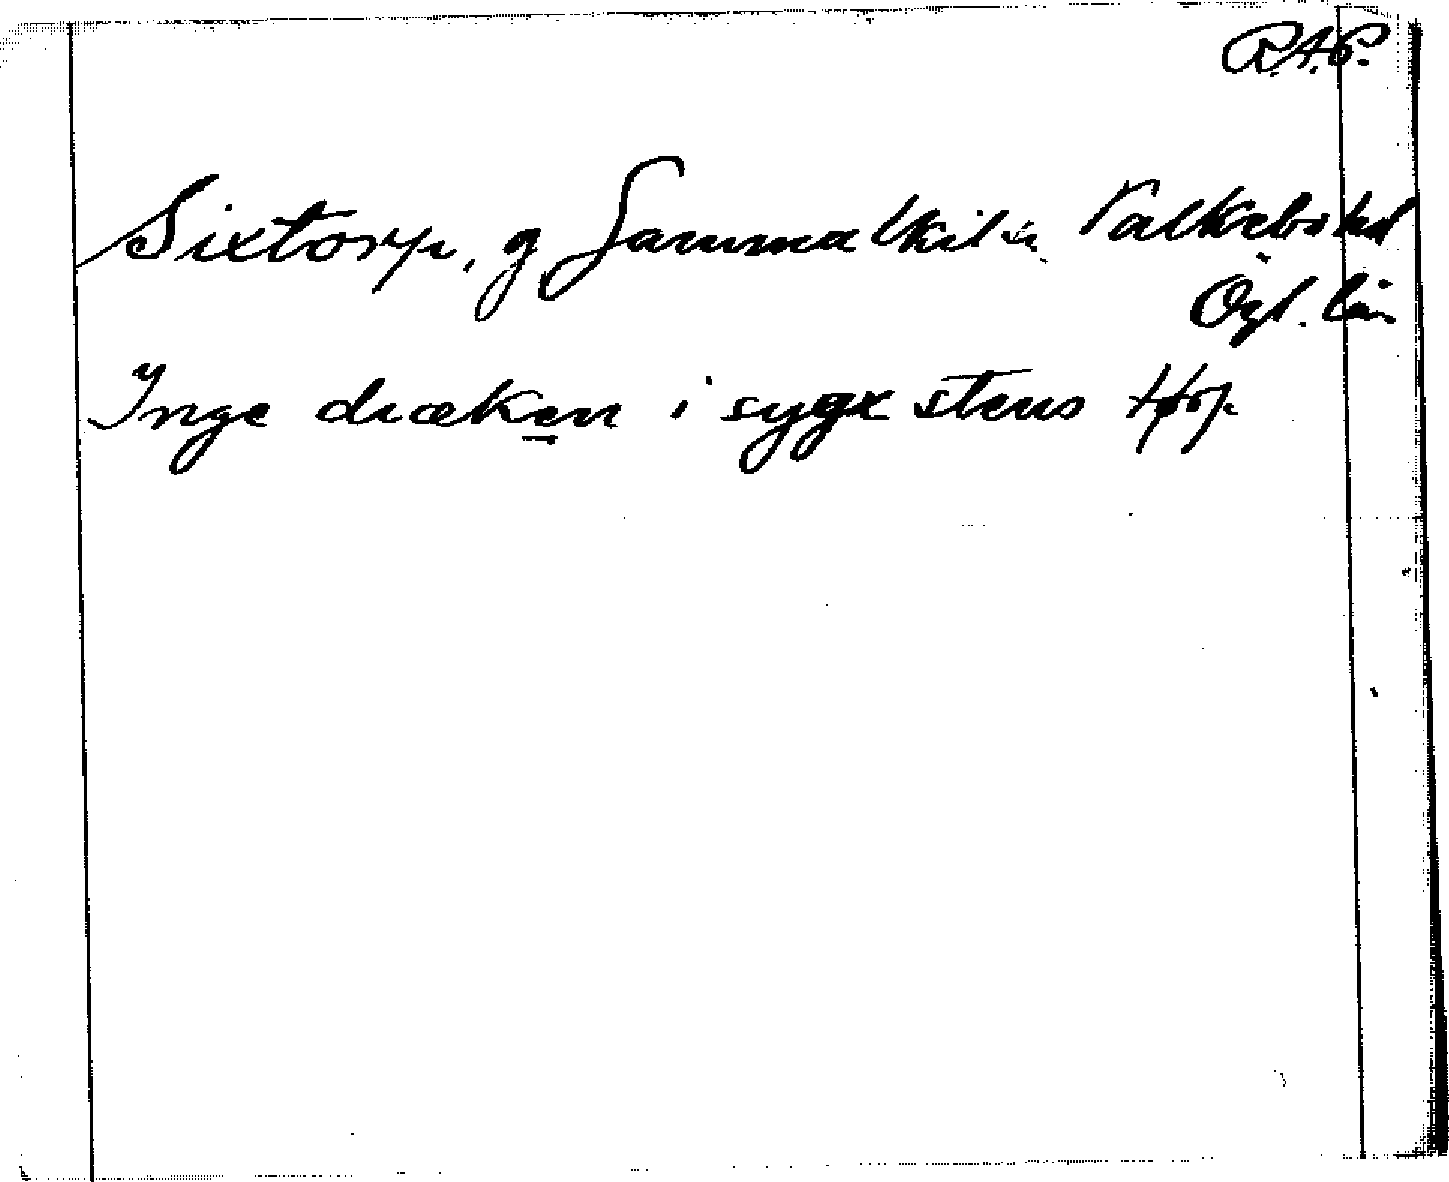 R.A.P.
Sixtorp, g Gammalkils Valkebo hd
Ögl. län
Inge dræken i sygx stens thorp